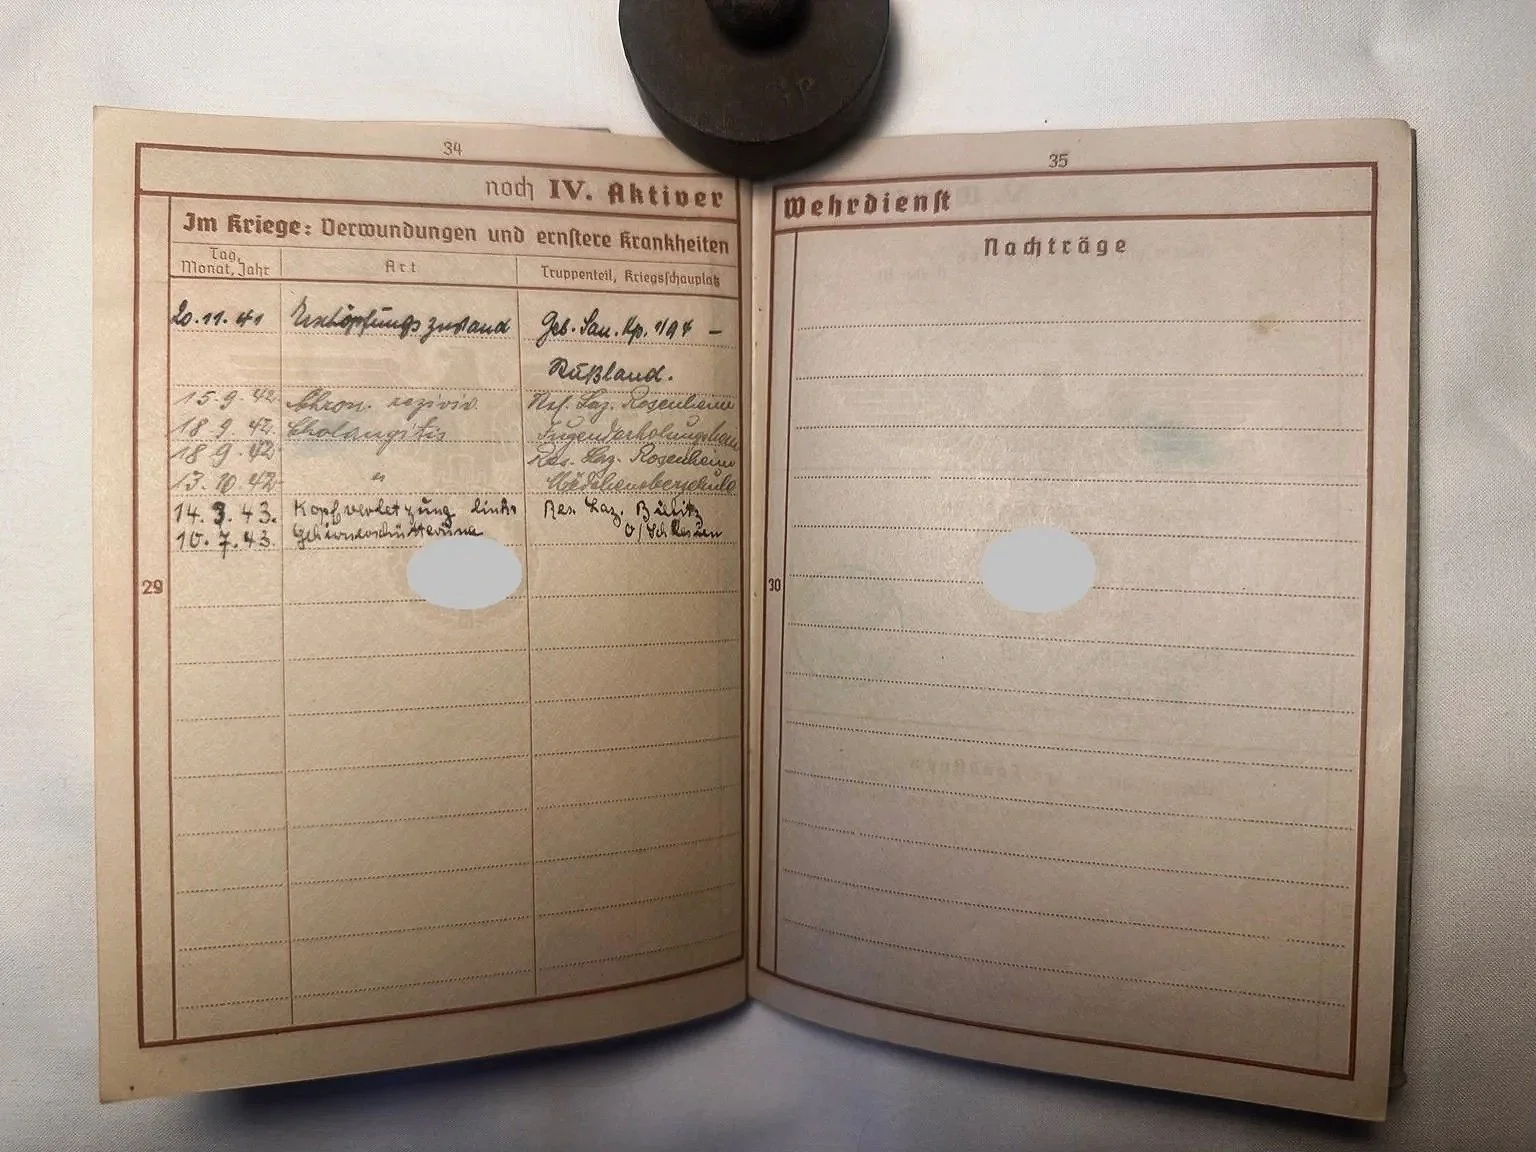 34
noch IV. Aktiver
Im Kriege: Verwundungen und ernstere Krankheiten
Tag, Monat, Jahr
Art
Truppenteil, Kriegsschauplatz
20.11.41 Erschöpfungszustand Geb. San. Kp. 1/94 –
Rußland.
15.9.42 Chron. reziviv. Res. Laz. Rosenheim
18.9.42 Cholangitis Jugenderholungsheim
18.9.42 Res. Laz. Rosenheim
13.10.42 " Mädchenoberschule
14.3.43. Kopfverletzung links Res. Laz. Bielitz
10.7.43. Gehirnerschütterung O/Schlesien
29
35
Wehrdienst
Nachträge
30